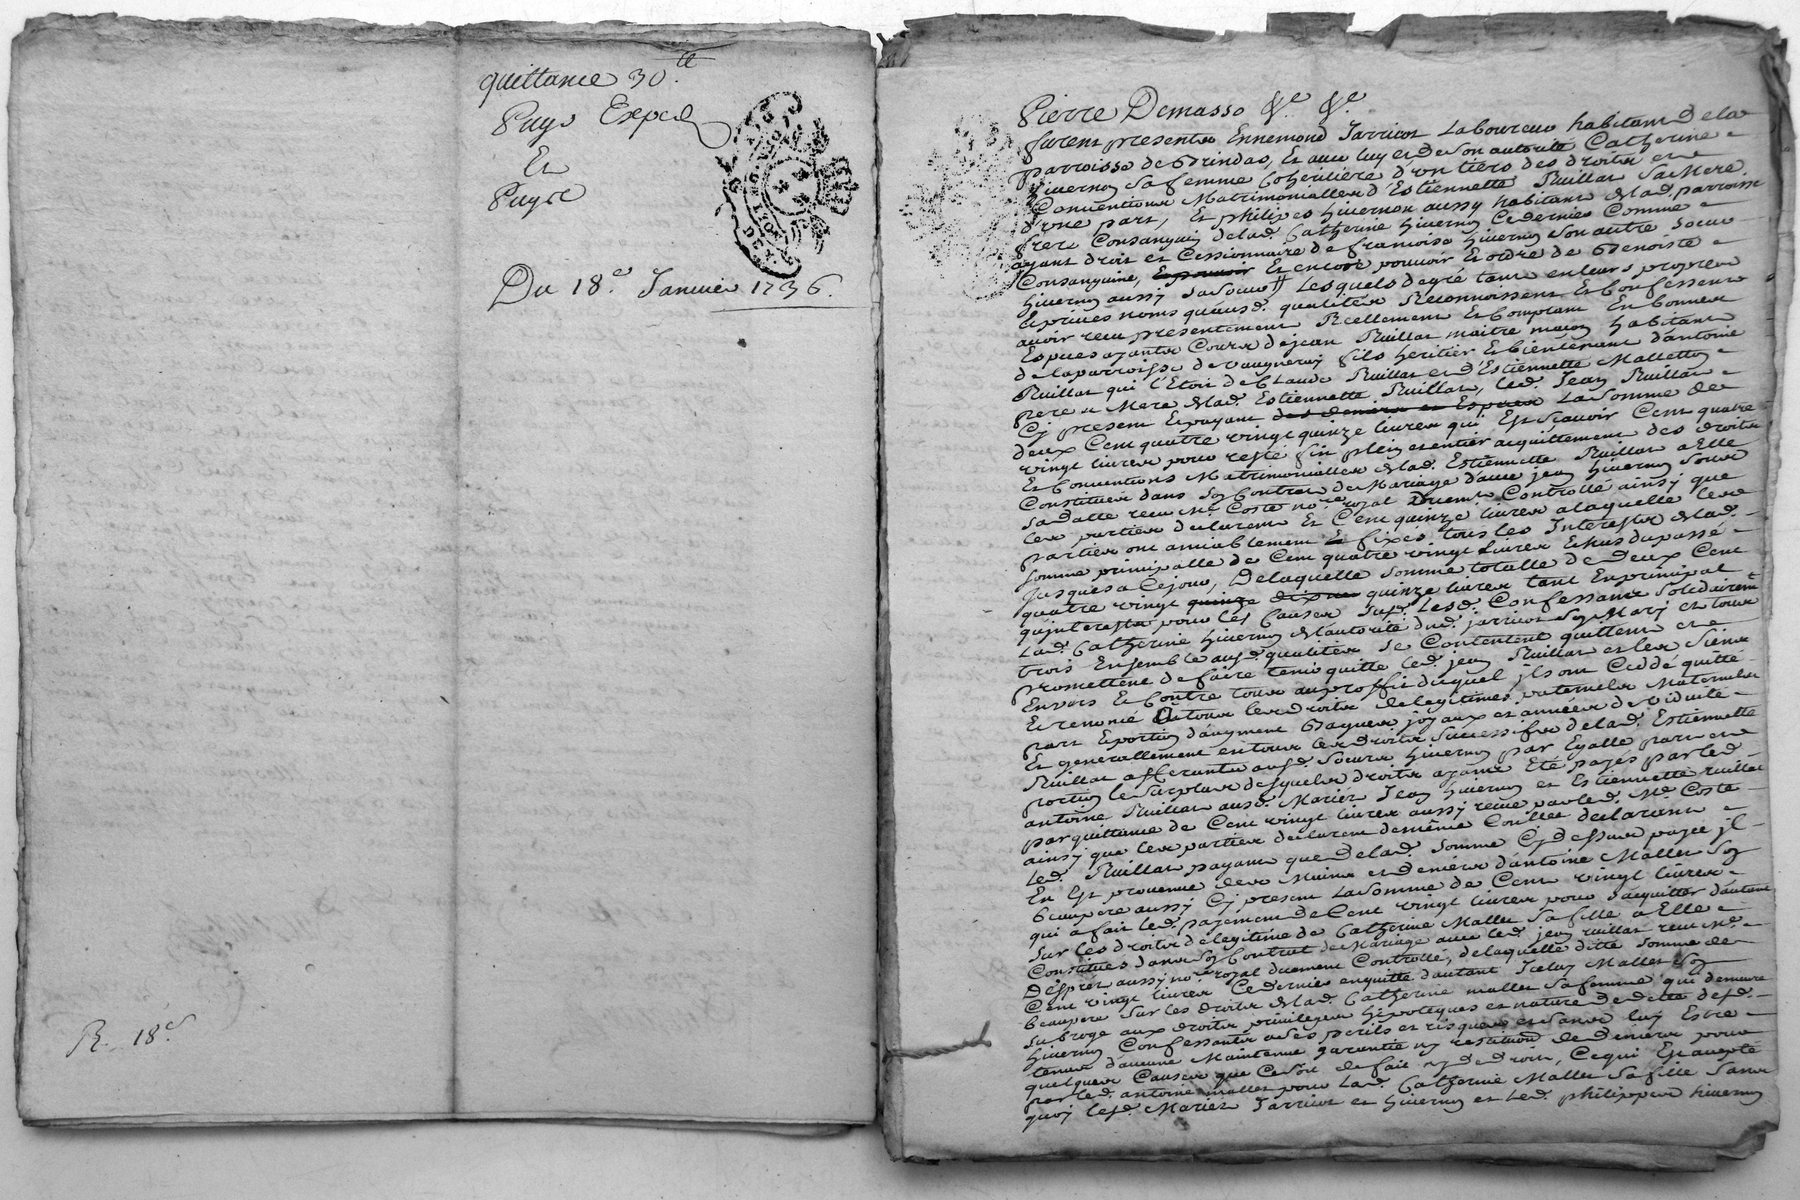 quittance 30.tt
Puys Exped
Et
Puyse
Du 18.e Janvier 1736.
R. 18.e
Pierre Demasso &.e &.e
furent presents Ennemond Jarricot Laboureur habitant dela
parroisse de Brindas, Et avec luy et de son autorité Catherine
hivernon sa femme Coheritiere d'un tiers des droits et
Conventions Matrimonialles d'Estiennette Ruillat sa Mere
d'une part, Et philipes hivernon aussy habitant de lad. parroisse
frere Consanguin de lad. Catherine hivernon Ce dernier Comme
ayant droit et Cessionnaire de francoise hivernon son autre soeur
Consanguine, Et pouvoir Et encore pouvoir Et ordre de Benoiste
hivernon aussy sa soeur Lesquels degré tant en leurs propres
Et privés noms qu'ausd. qualités Reconnoissent Et Confessent
avoir receu presentement Reellement Et Comptant En bonnes
Especes ayants Cours de jean Ruillat maitre maçon habitant
de la parroisse de vaugneray fils heritier Et bientenant d'antoine
Ruillat qui l'Etoit de Claude Ruillat et d'Estiennette Malletton
pere et Mere de lad. Estiennette Ruillat, led. Jean Ruillat
Cy present Et payant des deniers et Especes La somme de
deux Cent quatre vingt quinze livres qui Est scavoir Cent quatre
vingt livres pour reste fin plein et entier acquittement des droits
Et Conventions Matrimonialles de lad. Estiennette Ruillat a Elle
Constitués dans son Contrat de Mariage d'avec jean hivernon sous
sa datte receu Me. Coste no.re royal Duement Controllé ainsy que
les parties declarent Et Cent quinze livres a laquelle les
parties ont amiablement fixés tous les Interests de lad.
somme principalle de Cent quatre vingt livres Echus du passé
jusques a Cejour, De laquelle somme totalle de Deux Cent
quatre vingt quinze quinze livres tant En principal
qu'interests pour les Causes susd. Lesd. Confessants solidairemt
Lad. Catherine hivernon de l'autorité dud. jarricot son Mary et tous
trois Ensemble ausd. qualités se Contentent quittent et
promettent de faire tenir quitte led. jean Ruillat et les siens
Envers Et Contre tous au proffit duquel ils ont Ceddé quitté
Et renoncé a tous les droits de legitimes paternels Maternels
part Et portion d'augment Bagues joyaux et années de viduité
Et generallement en tous les droits successifs de lad. Estiennette
Ruillat afferants ausd. soeurs hivernon par Egalle part et
portion le surplus desquels droits ayant Eté payés par led.
antoine Ruillat ausd. Mariés Jean hivernon et Estiennette ruillat
par quittance de Cent vingt livres aussy receue par led. Me. Coste
ainsy que les parties declarent de même Comme declarent
Led. Ruillat payant que de lad. somme Cy dessus payée il
En Est provenue des Mains et deniers d'antoine Mallet son
beaupere aussy Cy present La somme de Cent vingt livres
qui a fait led. payement de Cent vingt livres pour s'acquitter d'autant
sur les droits de legitime de Catherine Mallet sa fille a Elle
Constitués dans son Contrat de Mariage avec led. jean ruillat receu Me.
Desprez aussy no.re royal duement Controllé, de laquelle ditte somme de
Cent vingt livres Ce dernier en quitte d'autant Iceluy Mallet son
beaupere sur les droits de lad. Catherine mallet sa femme qui demeure
subrogé aux droits privileges hipoteques et nature de dette desd.
hivernon Confessants a ses perils et risques et sans luy Estre
tenus d'aucune Maintenue garantie ny restitution de deniers pour
quelques Causes que Ce soit de fait ny de droit, Ce qui Est accepté
par led. antoine mallet pour Lad. Catherine Mallet sa fille sans
quoy lesd. Mariés Jarricot et hivernon et Led. philippes hivernon